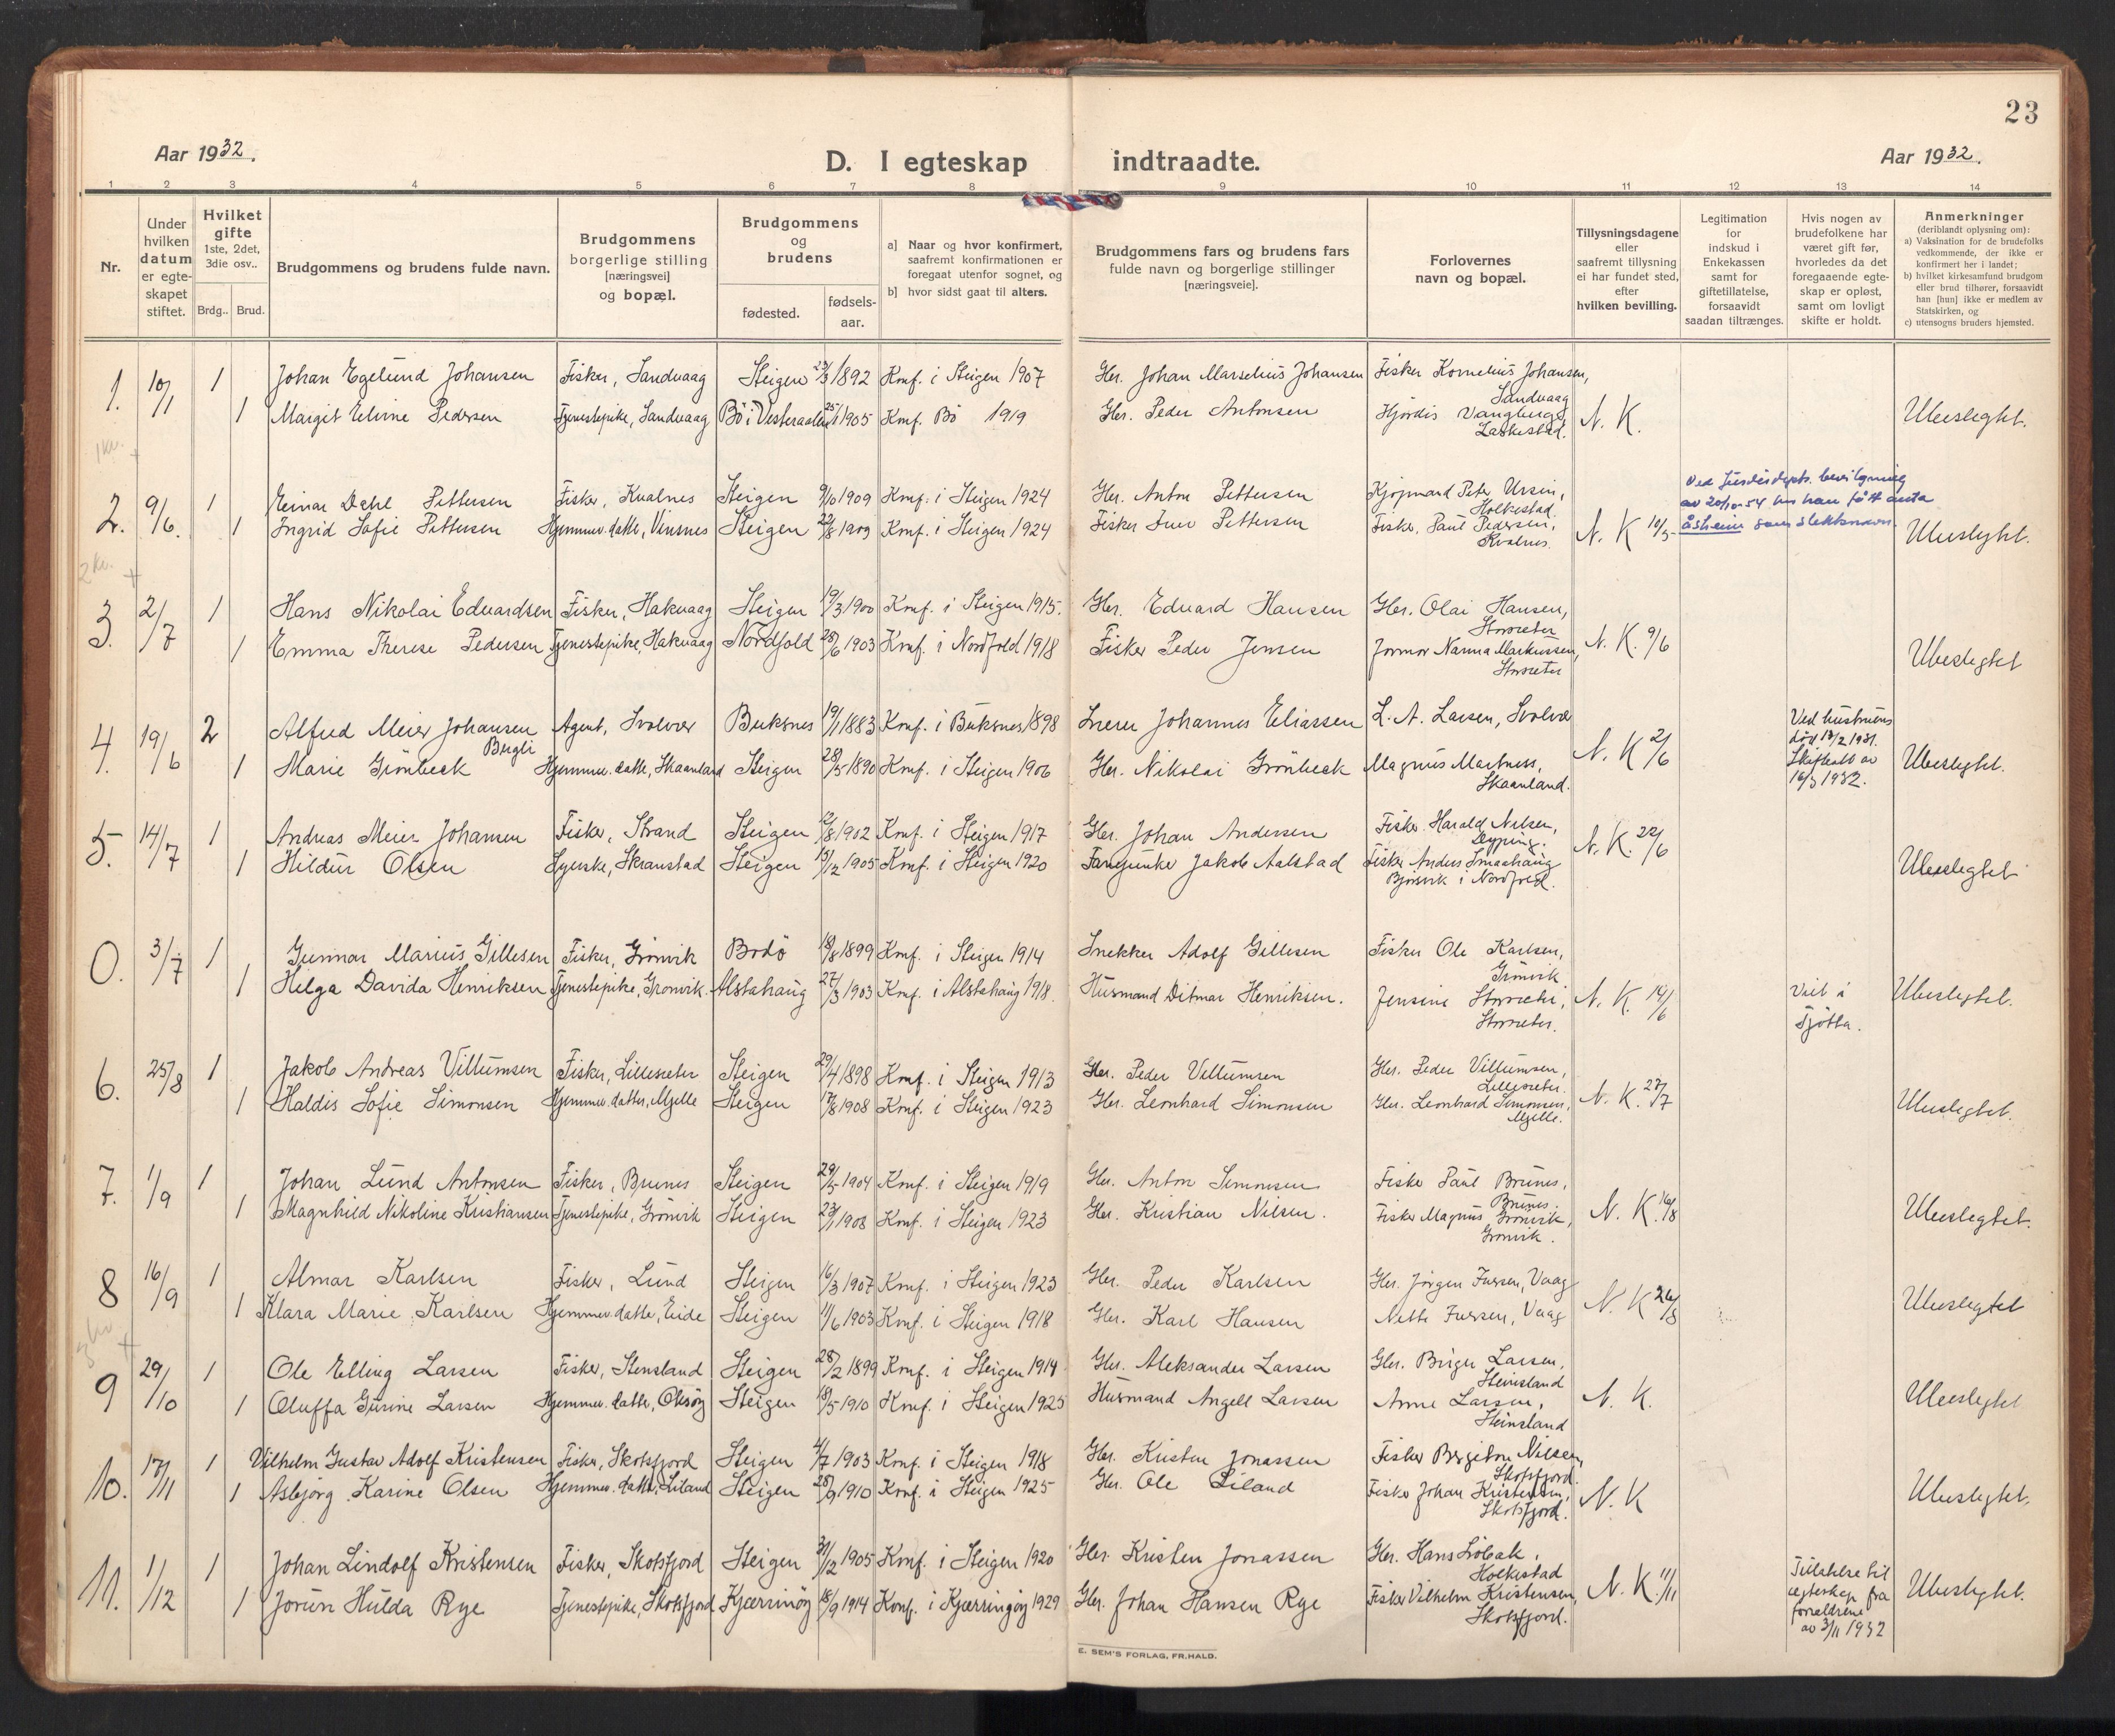 23
Aar 1932.
D. I egteskap indtraadte.
Aar 1932.
1 2 3 4 5 6 7 8 9 10 11 12 13 14
Nr.
Under hvilken datum er egte-skapet stiftet.
Hvilket gifte 1ste, 2det, 3die osv..
Brdg.. Brud.
Brudgommens og brudens fulde navn.
Brudgommens borgerlige stilling [næringsvei] og bopæl.
Brudgommens og brudens
fødested.
fødsels-aar.
a] Naar og hvor konfirmert, saafremt konfirmationen er foregaat utenfor sognet, og
b] hvor sidst gaat til alters.
Brudgommens fars og brudens fars fulde navn og borgerlige stillinger [næringsveie].
Forlovernes navn og bopæl.
Tillysningsdagene eller saafremt tillysning ei har fundet sted, efter hvilken bevilling.
Legitimation for indskud i Enkekassen samt for giftetillatelse, forsaavidt saadan tiltrænges.
Hvis nogen av brudefolkene har været gift før, hvorledes da det foregaaende egte-skap er opløst, samt om lovligt skifte er holdt.
Anmerkninger (deriblandt oplysning om):
a) Vaksination for de brudefolks vedkommende, der ikke er konfirmert her i landet;
b) hvilket kirkesamfund brudgom eller brud tilhører, forsaavidt han [hun] ikke er medlem av Statskirken, og
c) utensogns bruders hjemsted.
1. 10/1 1 Johan Egelund Johansen Fisker, Sandvaag Steigen 1892 Konf. i Steigen 1907 Gbr. Johan Marselius Johansen Fisker Kornelius Johansen, Sandvaag
1 Margit Elvine Pedersen Tjenestepike, Sandvaag Bö i Vesteraalen 25/1 1905 Konf. Bö 1919 Gbr. Peder Antonsen Hjördis Vangberg Laskestad. N. K. Ubeslegtet.
1 kv. +
2. 9/6. 1 Einar Dahl Pettersen Fisker, Kvalnes Steigen 9/10 1909 Konf. i Steigen 1924 Gbr. Anton Pettersen Kjöpmand Peter Ursin, Holkestad.
1 Ingrid Sofie Pettersen Hjemmev. datter, Vinsnes Steigen 22/8 1909 Konf. i Steigen 1924 Fisker Pettersen Fisker, Paul Pedersen, Kvalnes. N. K 10/5 Ubeslegtet.
Ved Justisdepts. bevilgning
av 20/10-54 han fått anta
Åsheim som slektsnavn.
2 kv. +
3. 2/7 1 Hans Nikolai Edvardsen Fisker, Hakvaag Steigen 19/3 1900 Konf. i Steigen 1915. Gbr. Edvard Hansen Gbr. Olai Hansen, Storsæter
1 Emma Therese Pedersen Tjenestepike, Hakvaag Nordfold 28/6 1903 Konf. i Nordfold 1918 Fisker Peder Jensen Jormor Nanna Markussen, Storsæter N. K. 9/6 Ubeslegtet
4. 19/6 2 Alfred Meier Johansen Bergli Agent, Svolvær Buksnes 19/1 1883 Konf. i Buksnes 1898 Johannes Eliassen L. A. Larsen, Svolvær
1 Marie Grönbeck Hjemmev. datter, Skaanland Steigen 28/5 1890 Konf. i Steigen 1906 Gbr. Nikolai Grönbeck Magnus Martness, Skaanland. N. K 2/6 Ubeslegtet.
Ved hustruens
död 13/2 1931.
Skifteatt av
16/3 1932.
5. 14/7 1 Andreas Meier Johansen Fisker, Strand Steigen 2/8 1902 Konf. i Steigen 1917 Gbr. Johan Andersen Fisker Harald Nilsen, Dypping.
1 Hildur Olsen Syerske, Skranstad Steigen 1905 Konf. i Steigen 1920 Jakob Aalstad Fisker Anders Smaahaug Björsvik i Nordfold. N. K. 22/6 Ubeslegtet
0. 3/7 1 Gunnar Marius Gillesen Fisker, Grönvik Bodö 18/8 1899 Konf. i Steigen 1914 Snekker Adolf Gillesen Fisker Ole Karlsen, Grönvik
1 Helga Davida Henriksen Tjenestepike, Grönvik. Alstahaug 27/3 1903 Konf. i Alstahaug 1918. Husmand Ditmar Henriksen. Jensine Storsæter, Storsæter. N. K. 14/6 Viet i Tjötta. Ubeslegtet.
6. 25/8 1 Jakob Andreas Villumsen Fisker, Lillesæter Steigen 29/4 1898 Konf. i Steigen 1913 Gbr. Peder Villumsen Gbr. Peder Villumsen, Lillesæter.
1 Haldis Sofie Simonsen Hjemmev. datter, Mjelle Steigen 17/8 1908 Konf. i Steigen 1923 Gbr. Leonhard Simonsen Gbr. Leonhard Simonsen, Mjelle. N. K. 27/7 Ubeslegtet.
7. 1/9 1 Johan Lund Antonsen Fisker, Brunes Steigen 29/5 1904 Konf. i Steigen 1919 Gbr. Anton Simonsen Fisker Paul Brunes, Brunes.
1 Magnhild Nikoline Kristiansen Tjenestepike, Grönvik Steigen 23/1 1908 Konf. i Steigen 1923 Gbr. Kristian Nilsen. Fisker Magnus Grönvik, Grönvik. N. K. 16/8 Ubeslegtet.
8 16/9 1 Almar Karlsen Fisker, Lund Steigen 16/3 1907 Konf. i Steigen 1923 Gbr. Peder Karlsen Gbr. Jörgen Iversen, Vaag
1 Klara Marie Karlsen Hjemmev. datter, Eide Steigen 11/6 1903 Konf. i Steigen 1918 Gbr. Karl Hansen Nette Iversen, Vaag N. K 26/8 Ubeslegtet
3 kv. +
9 29/10 1 Ole Elling Larsen Fisker, Stensland Steigen 28/2 1899 Konf. i Steigen 1914 Gbr. Aleksander Larsen Gbr. Birger Larsen, Steinsland
1 Oluffa Gurine Larsen Hjemmev. datter, Oksöy Steigen 18/5 1910 Konf. i Steigen 1925 Husmand Angell Larsen Anne Larsen, Steinsland N. K. Ubeslegtet
10. 17/11 1 Vilhelm Gustav Adolf Kristensen Fisker, Skotsfjord Steigen 4/7 1903 Konf. i Steigen 1918 Gbr. Kristen Jonassen Fisker Bergeton Nilsen, Skotsfjord.
1 Asbjörg Karine Olsen Hjemmev. datter, Liland Steigen 28/9 1910 Konf. i Steigen 1925 Gbr. Ole Liland Fisker Johan Kristensen, Skotsfjord. N. K Ubeslegtet.
11. 1/12 1 Johan Lindolf Kristensen Fisker, Skotsfjord Steigen 31/12 1905 Konf. i Steigen 1920 Gbr. Kristen Jonassen Gbr. Hans Löbak, Holkestad
1 Jorun Hulda Rye Tjenestepike, Skotsfjord Kjærringöy 18/9 1914 Konf. i Kjærringöy 1929 Gbr. Johan Hansen Rye Fisker Vilhelm Kristensen, Skotsfjord. N. K. 11/11 Ubeslegtet.
Tillatelse til
egteskap fra
forældrene
av 3/11 1932
E. SEM'S FORLAG, FR.HALD.